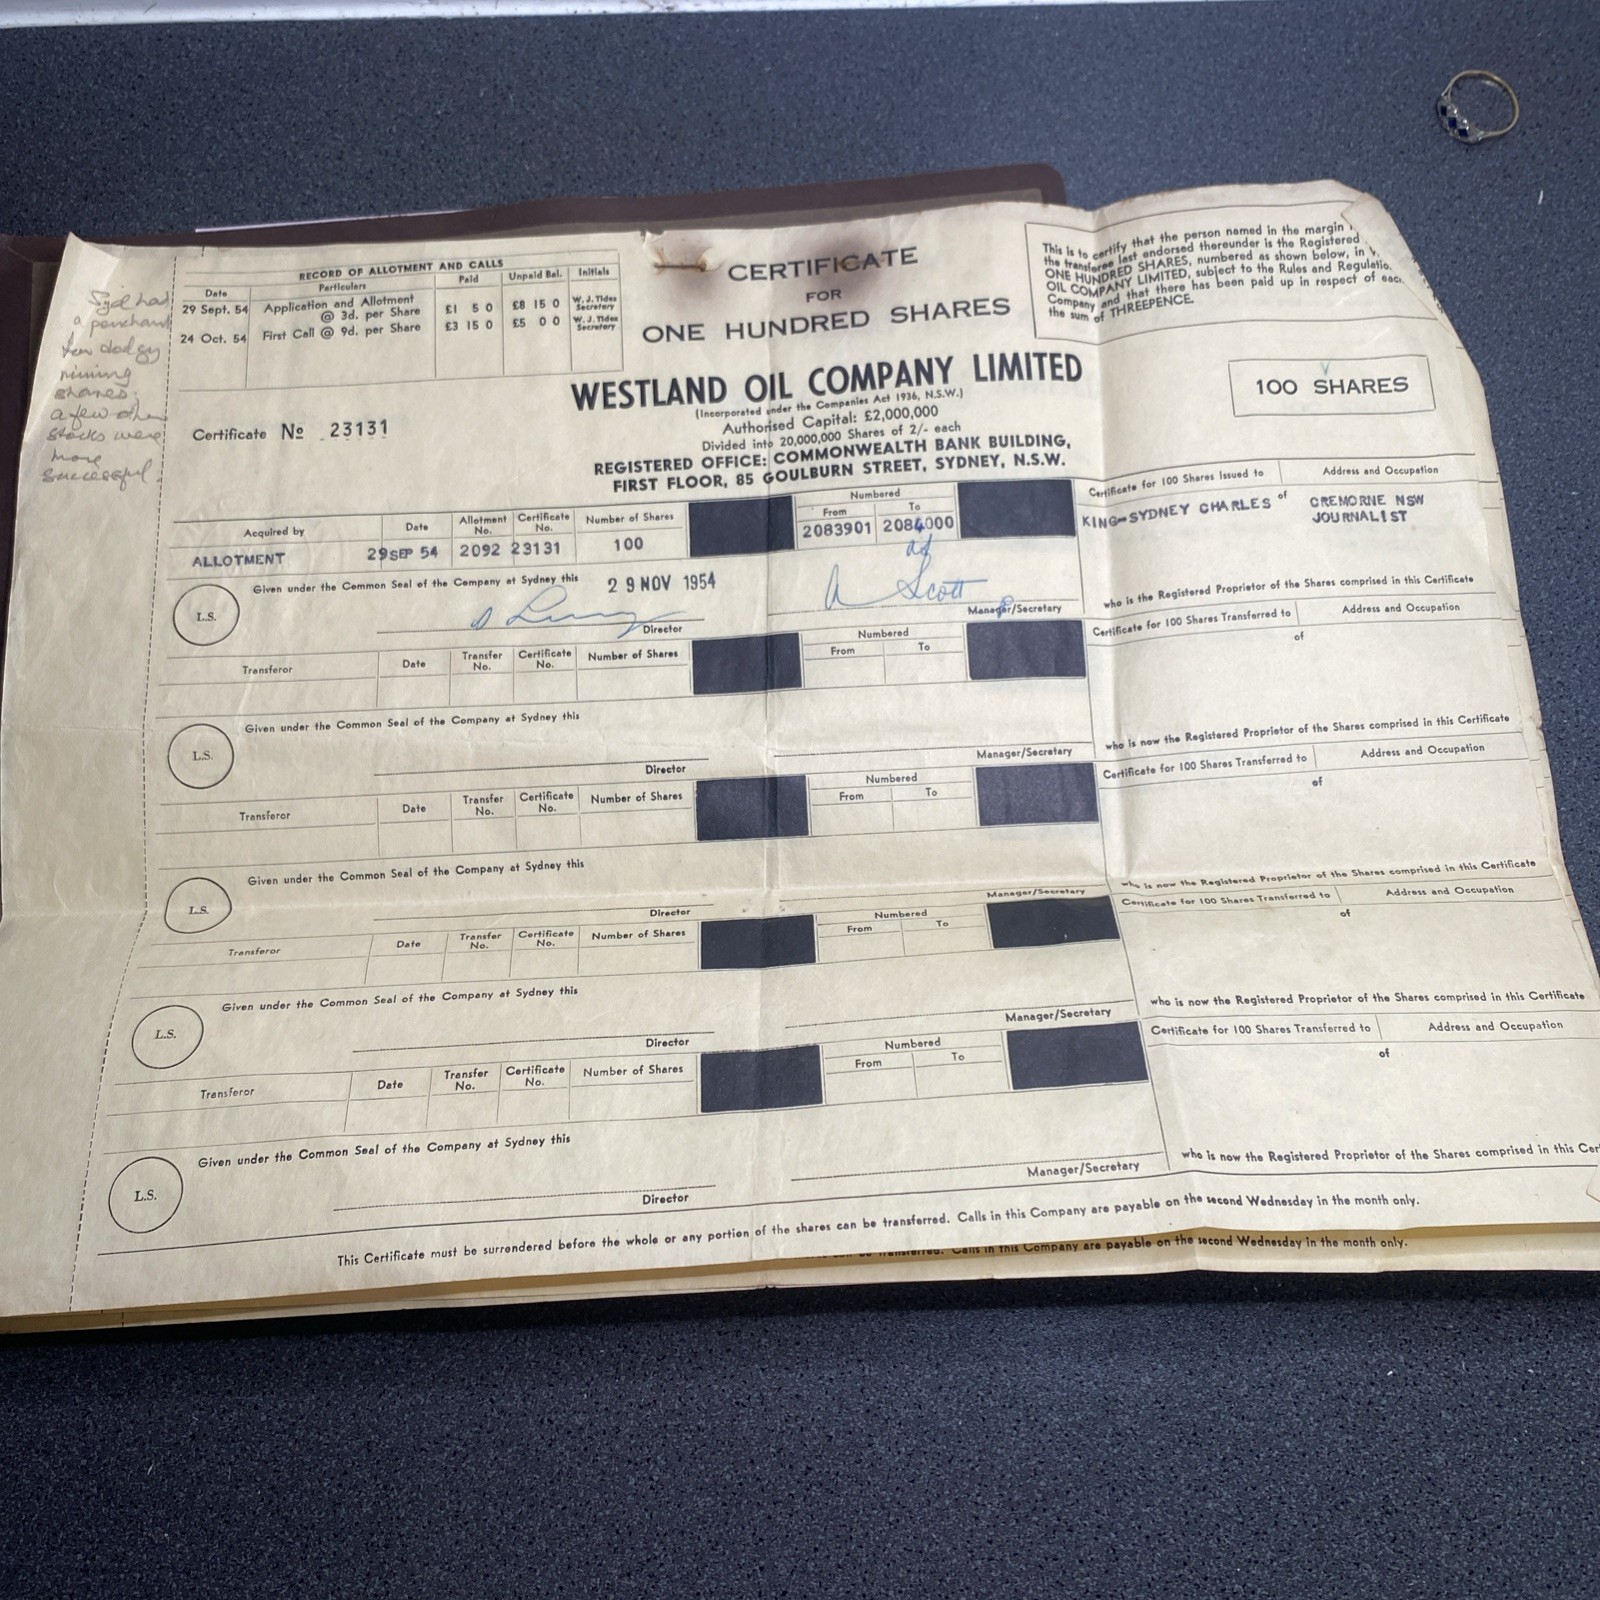 Syd had
a penchant
for dodgy
mining
shares.
a few other
stocks were
more
successful.
RECORD OF ALLOTMENT AND CALLS
Date Particulars Paid Unpaid Bal. Initials
29 Sept. 54 Application and Allotment @ 3d. per Share £1 5 0 £8 15 0 W. J. Tides Secretary
24 Oct. 54 First Call @ 9d. per Share £3 15 0 £5 0 0 W. J. Tides Secretary
CERTIFICATE
FOR
ONE HUNDRED SHARES
This is to certify that the person named in the margin
the transferee last endorsed thereunder is the Registered
ONE HUNDRED SHARES, numbered as shown below, in
OIL COMPANY LIMITED, subject to the Rules and
Company and that there has been paid up in respect of
the sum of THREEPENCE.
WESTLAND OIL COMPANY LIMITED
(Incorporated under the Companies Act 1936, N.S.W.)
Authorised Capital: £2,000,000
Divided into 20,000,000 Shares of 2/- each
REGISTERED OFFICE: COMMONWEALTH BANK BUILDING,
FIRST FLOOR, 85 GOULBURN STREET, SYDNEY, N.S.W.
100 SHARES
Certificate No 23131
Acquired by Date Allotment No. Certificate No. Number of Shares Numbered From To
ALLOTMENT 29 SEP 54 2092 23131 100 2083901 2084000
Certificate for 100 Shares Issued to Address and Occupation
KING-SYDNEY CHARLES of CREMORNE NSW
JOURNALIST
L.S. Given under the Common Seal of the Company at Sydney this 29 NOV 1954
A Scott
Director Manager/Secretary
who is the Registered Proprietor of the Shares comprised in this Certificate
Transferor Date Transfer No. Certificate No. Number of Shares Numbered From To
Certificate for 100 Shares Transferred to Address and Occupation
of
L.S. Given under the Common Seal of the Company at Sydney this
Director Manager/Secretary
who is now the Registered Proprietor of the Shares comprised in this Certificate
Transferor Date Transfer No. Certificate No. Number of Shares Numbered From To
Certificate for 100 Shares Transferred to Address and Occupation
of
L.S. Given under the Common Seal of the Company at Sydney this
Director Manager/Secretary
who is now the Registered Proprietor of the Shares comprised in this Certificate
Transferor Date Transfer No. Certificate No. Number of Shares Numbered From To
Certificate for 100 Shares Transferred to Address and Occupation
of
L.S. Given under the Common Seal of the Company at Sydney this
Director Manager/Secretary
who is now the Registered Proprietor of the Shares comprised in this Certificate
Transferor Date Transfer No. Certificate No. Number of Shares Numbered From To
Certificate for 100 Shares Transferred to Address and Occupation
of
L.S. Given under the Common Seal of the Company at Sydney this
Director Manager/Secretary
who is now the Registered Proprietor of the Shares comprised in this
This Certificate must be surrendered before the whole or any portion of the shares can be transferred. Calls in this Company are payable on the second Wednesday in the month only.
transferred. Calls in this Company are payable on the second Wednesday in the month only.